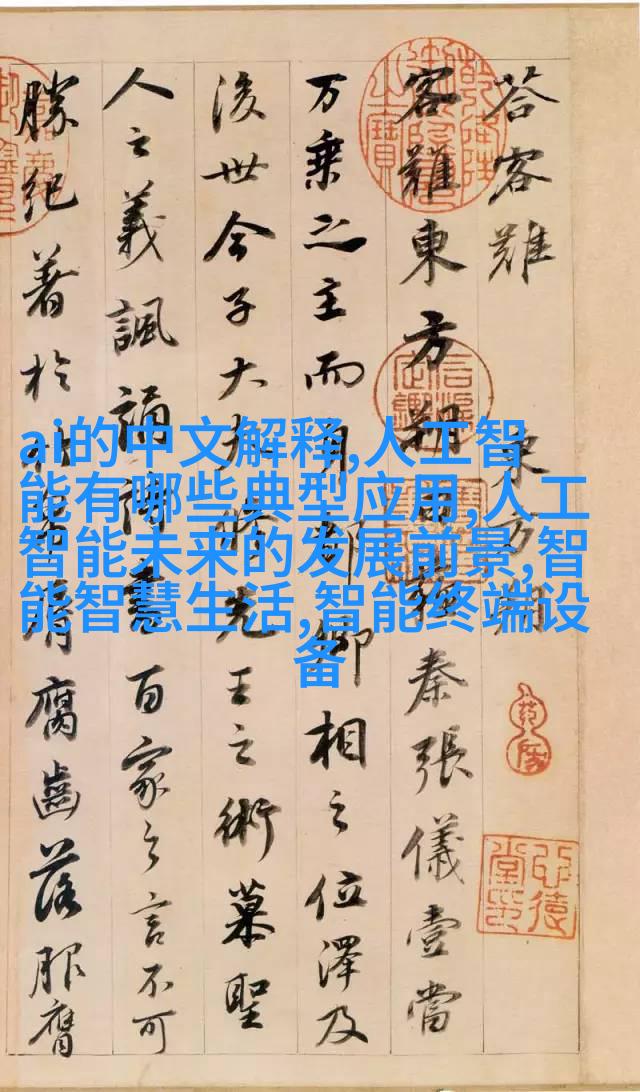 荅客難 東方朔
客難東方朔曰蘇秦張儀壹當
万乗之主而身都卿相之位澤及
後世今子大夫脩先王之術慕聖
人之義諷誦詩書百家之言不可
勝紀著於竹帛脣腐齒落服膺
ai的中文解释,人工智
能有哪些典型应用,人工
智能未来的发展前景,智
能智慧生活,智能终端设
备